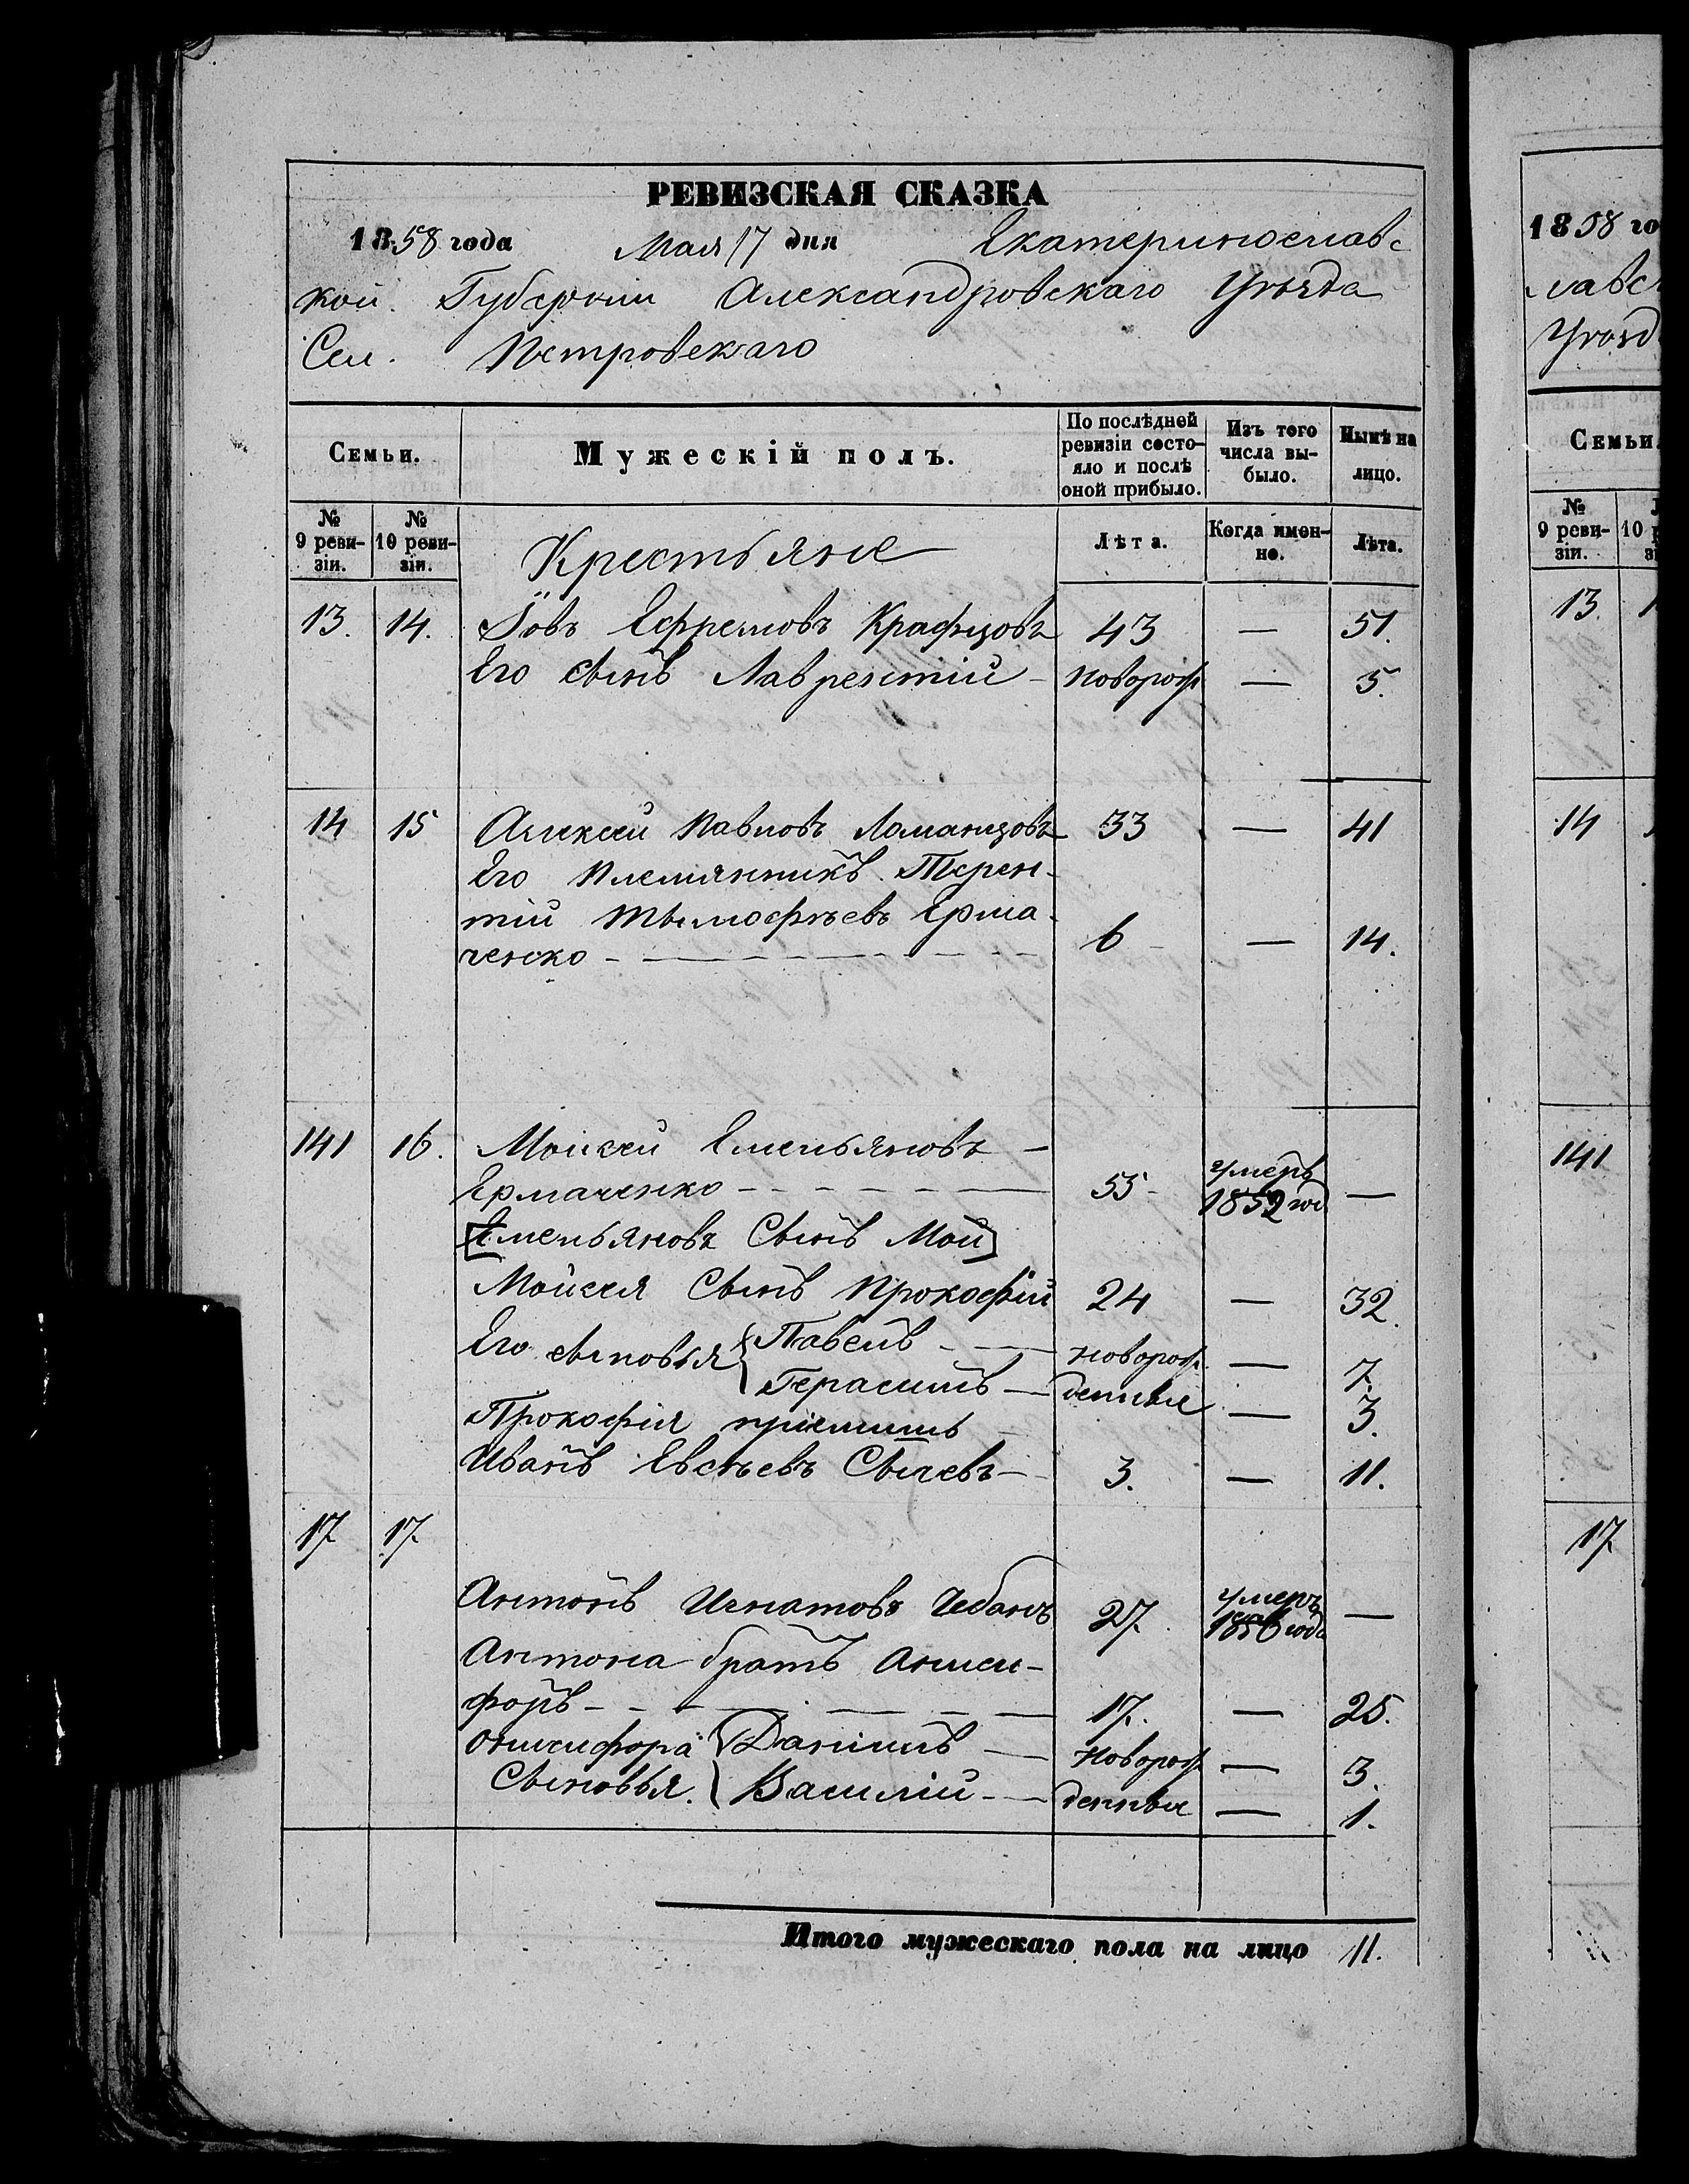 РЕВИЗСКАЯ СКАЗКА
1858 года Мая 17 дня Екатеринославс
кой Губерніи Александровскаго Уѣзда
Сел. Петровскаго
Семьи. Мужескій полъ. По послѣдней ревизіи состояло и послѣ оной прибыло. Изъ того числа выбыло. Нынѣ на лицо.
№ 9 ревизіи. № 10 ревизіи. Крестьяне Лѣта. Когда именно. Лѣта.
13. 14. Іовъ Ефремовъ 43 — 51.
Его сынъ Лаврентій – новорож — 5.
14 15 Алексей Павловъ Ломанцовъ 33 — 41
Его племянникъ Терен-
тій Тымофѣевъ Ерма-
ченко 6 — 14.
141 16. Мойсей Емельяновъ —
Ермаченко 55 умеръ 1852 год —
[Емельяновъ Сынъ Мой]
Мойсея Сынъ Прокофій 24 — 32.
Его сыновья { Павелъ новорож — 7.
Герасимъ — денные — 3.
Прокофія пріемышъ
Иванъ Евсѣевъ Сычевъ — 3. — 11.
17 17.
Антонъ Игнатовъ Чебанъ 27. умеръ 1856 года —
Антона братъ Аниси-
форъ 17. — 25.
Онисифора { Даніилъ — новорож — 3.
Сыновья. Василій — денные — 1.
Итого мужескаго пола на лицо 11.
1858 го
лавс
Уѣзд
Семьи.
№ 9 ревизіи. 10
13. 1
14
141
17